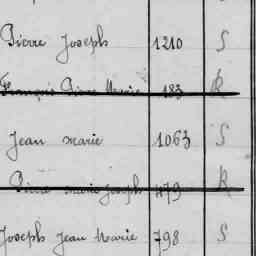 Pierre Joseph 1210 S
François Pierre Marie 183 R
Jean Marie 1063 S
Pierre Marie Joseph 479 R
Joseph Jean Marie 798 S